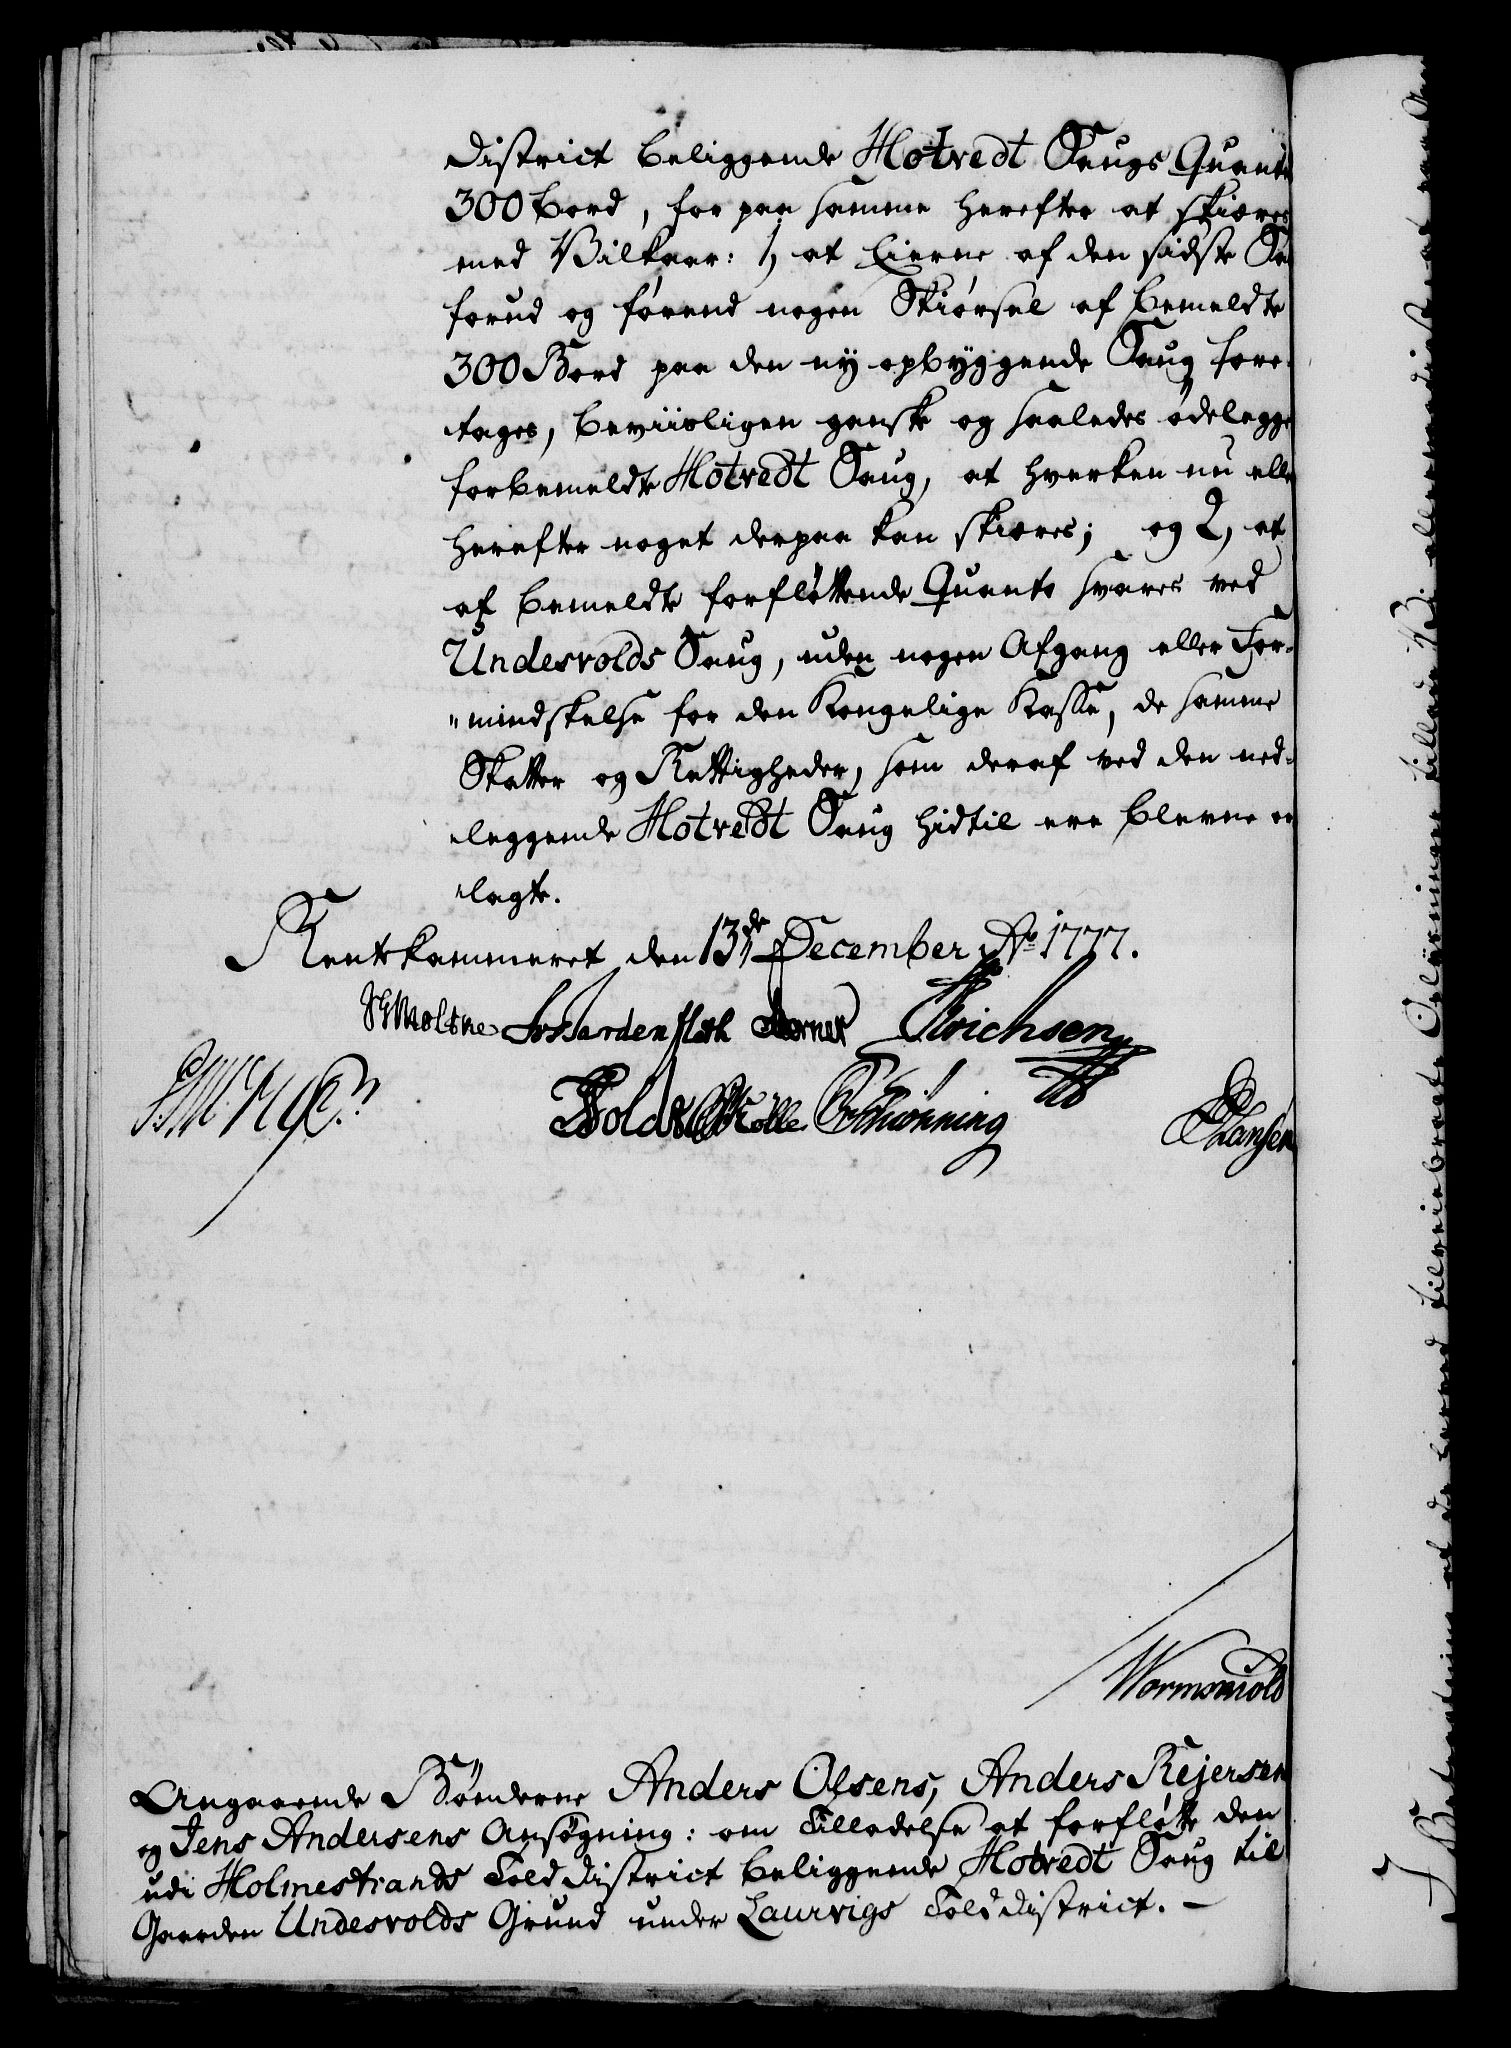 District beliggende Hotvedt Saugs Quant
300 bord, for paa samme herefter at skiæres
med Vilkaar: 1, at Eierne af den sidste Sa
forud og førend nogen Skiørsel af bemeldte
300 Bord paa den ny opbyggende Saug fore-
tages, beviisligen ganske og saaledes ødelegge
forbemeldte Hotvedt Saug, at hverken nu elle
herefter noget derpaa kan skiæres; og 2, at
af bemeldte forfløttende Quanto svares ved
Undesvolds Saug, uden nogen Afgang eller For-
"mindskelse for den Kongelige Kasse, de samme
Skatter og Rettigheder, som deraf ved den ned-
leggende Hotvedt Saug hidtil ere blevne er
"lagte.
Rentekammeret den 13de December Ao 1777.
JGMoltke Jardenfleth Berner Erichsen
Holdt Mølle Schiønning
CHansen
Wormskiold
Angaaende Bønderne Anders Olsens, Anders Rejersen
og Jens Andersens Ansøgning: om Tilladelse at forfløtte den
udi Holmestrands Told District beliggende Hotvedt Saug til
Gaarden Undesvolds Grund under Laurvigs Told District. –
I Betragtning at de forud tilveiebragte Oplysninger tillade Vi allernaadigst at paa